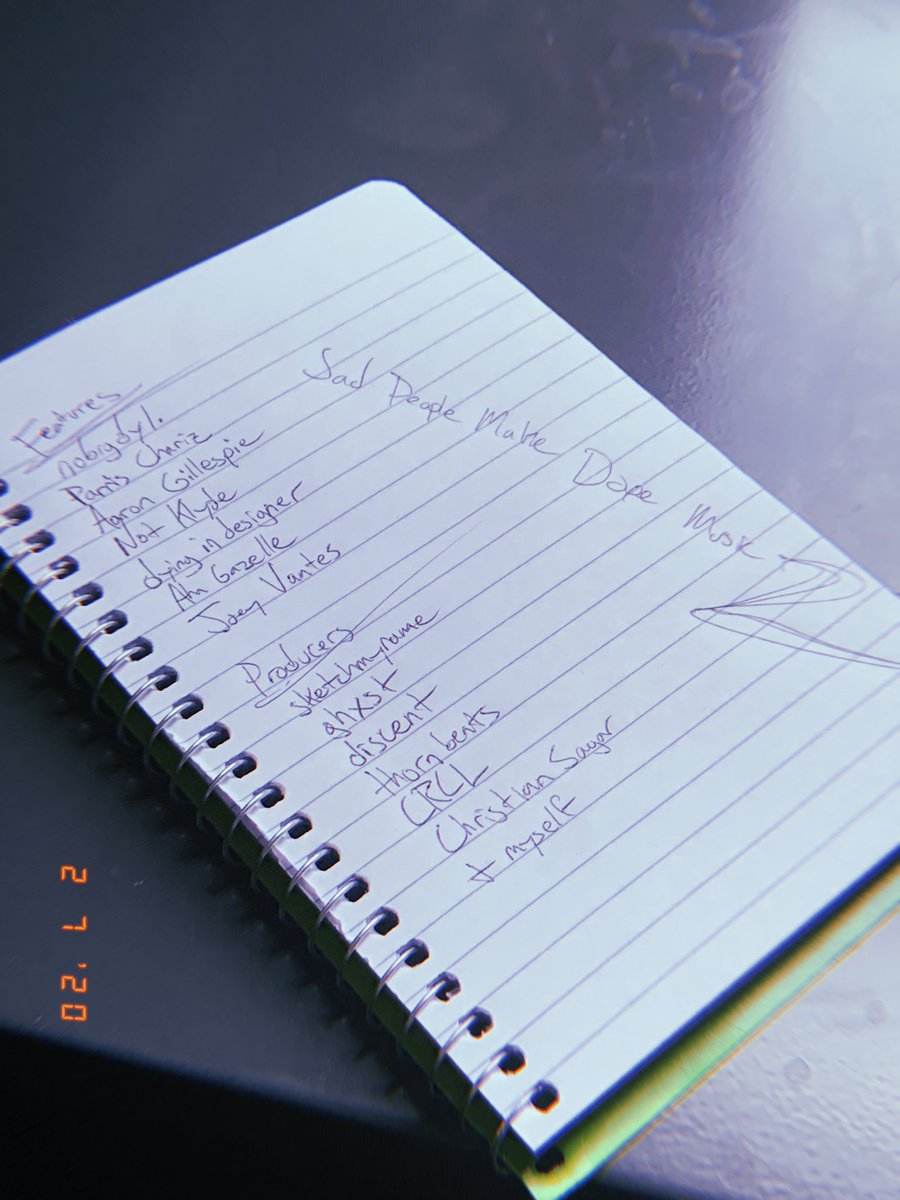 Sad People Make Dope Music
Features
nobigdyl.
Parris Chariz
Aaron Gillespie
Not Klyde
dying in designer
Ah Gazelle
Joey Vantes
Producers
sketchmyname
ghxst
discent
thorn beats
CRCL
Christian Sagar
+ myself
2 7 '20